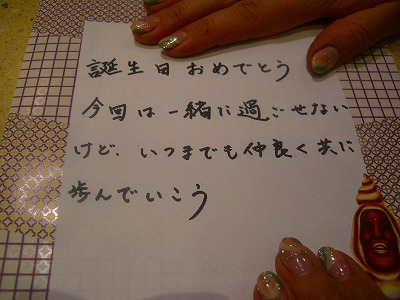 誕生日おめでとう
今回は一緒に過ごせない
けど、いつまでも仲良く共に
歩んでいこう